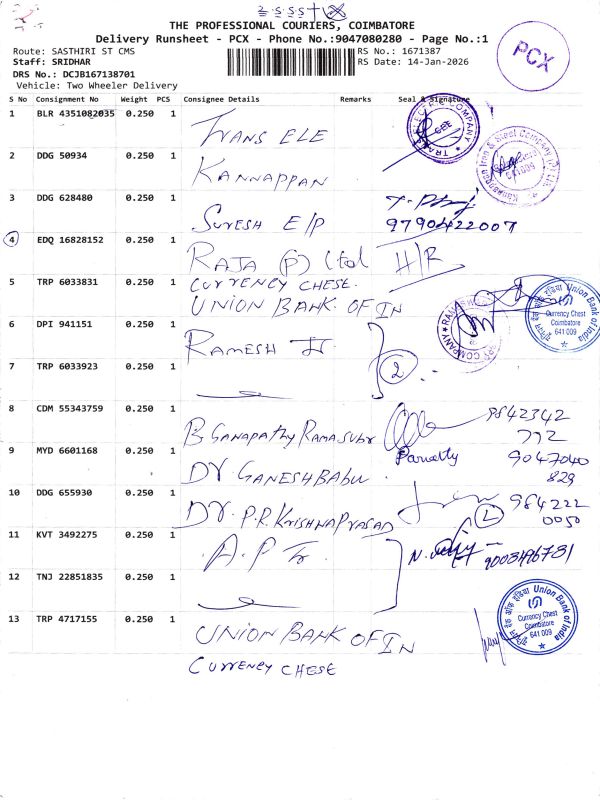 THE PROFESSIONAL COURIERS, COIMBATORE
Delivery Runsheet - PCX - Phone No.:9047080280 - Page No.:1
Route: SASTHIRI ST CMS RS No.: 1671387
Staff: SRIDHAR RS Date: 14-Jan-2026
DRS No.: DCJB167138701
Vehicle: Two Wheeler Delivery
PCX
S No Consignment No Weight PCS Consignee Details Remarks Seal & Signature
1 BLR 4351082035 0.250 1 TRANS ELE
2 DDG 50934 0.250 1 KANNAPPAN
641 009
3 DDG 628480 0.250 1 SURESH E/P
9790422007
4 EDQ 16828152 0.250 1 RAJA (P) Ltd H/R
5 TRP 6033831 0.250 1 CURRENCY CHESE.
UNION BANK OF IN
Union Bank of India
Currency Chest
Coimbatore
641 009
6 DPI 941151 0.250 1 RAMESH Tr
7 TRP 6033923 0.250 1
2
8 CDM 55343759 0.250 1 B Ganapathy Ramasubr
9842342
772
9 MYD 6601168 0.250 1 DR GANESH BABU
9047040
829
10 DDG 655930 0.250 1 DR. P.R. KRISHNAPRASAD
984222
0050
11 KVT 3492275 0.250 1 A.P Tr.
9003496731
12 TNJ 22851835 0.250 1
13 TRP 4717155 0.250 1 UNION BANK OF IN
CURRENCY CHESE
Union Bank of India
Currency Chest
Coimbatore
641 009